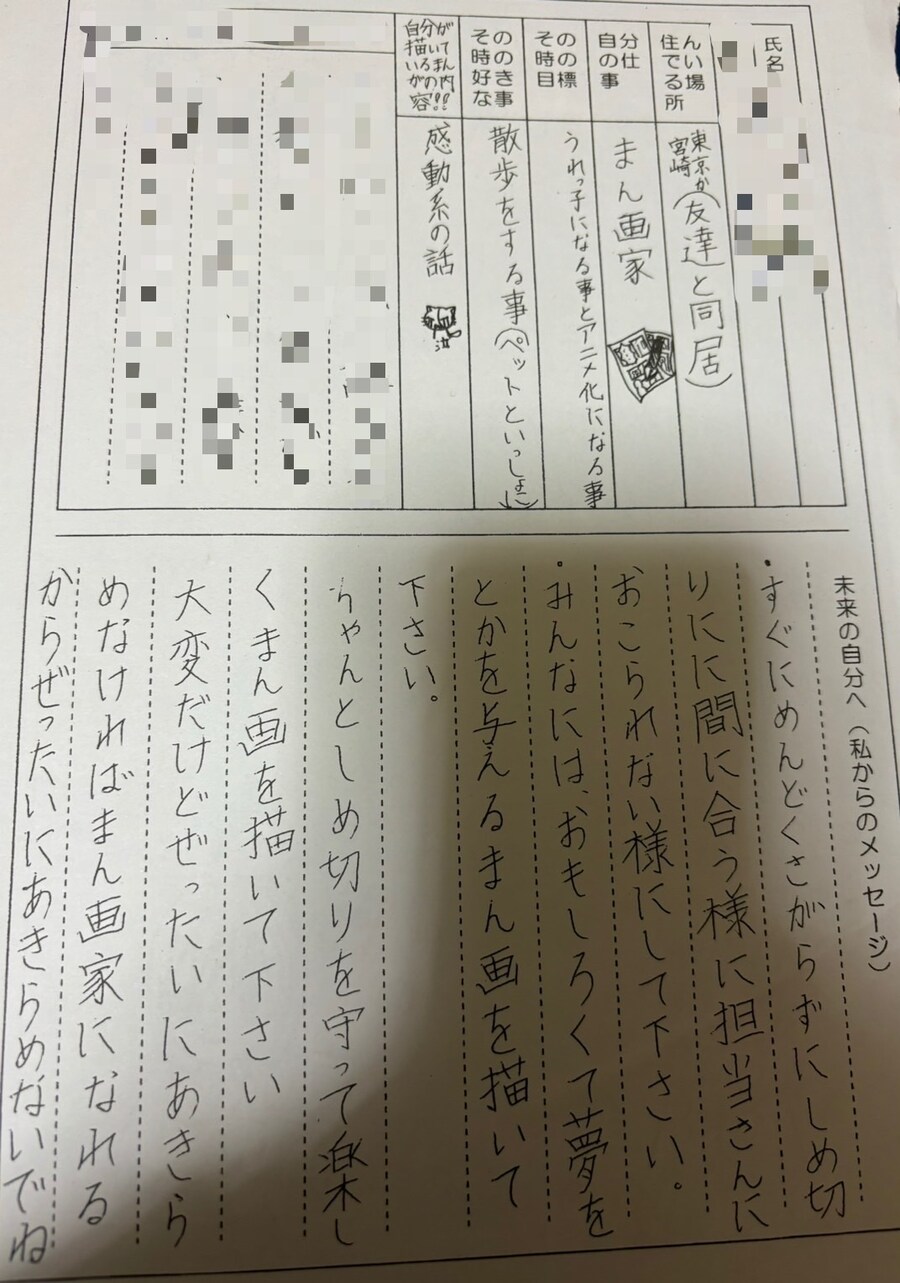 氏名
住んでいる場所
東京か宮崎(友達と同居)
自分の仕事
まん画家
その時の目標
うれっ子になる事とアニメ化になる事
その時の好きな事
散歩をする事(ペットといっしょに)
自分が描いているまんがの内容!!
感動系の話
泣
未来の自分へ(私からのメッセージ)
・すぐにめんどくさがらずにしめ切
りにに間に合う様に担当さんに
おこられない様にして下さい。
・みんなには、おもしろくて夢を
とかを与えるまん画を描いて
下さい。
ちゃんとしめ切りを守って楽し
くまん画を描いて下さい
大変だけどぜったいにあきら
めなければまん画家になれる
からぜったいにあきらめないでね